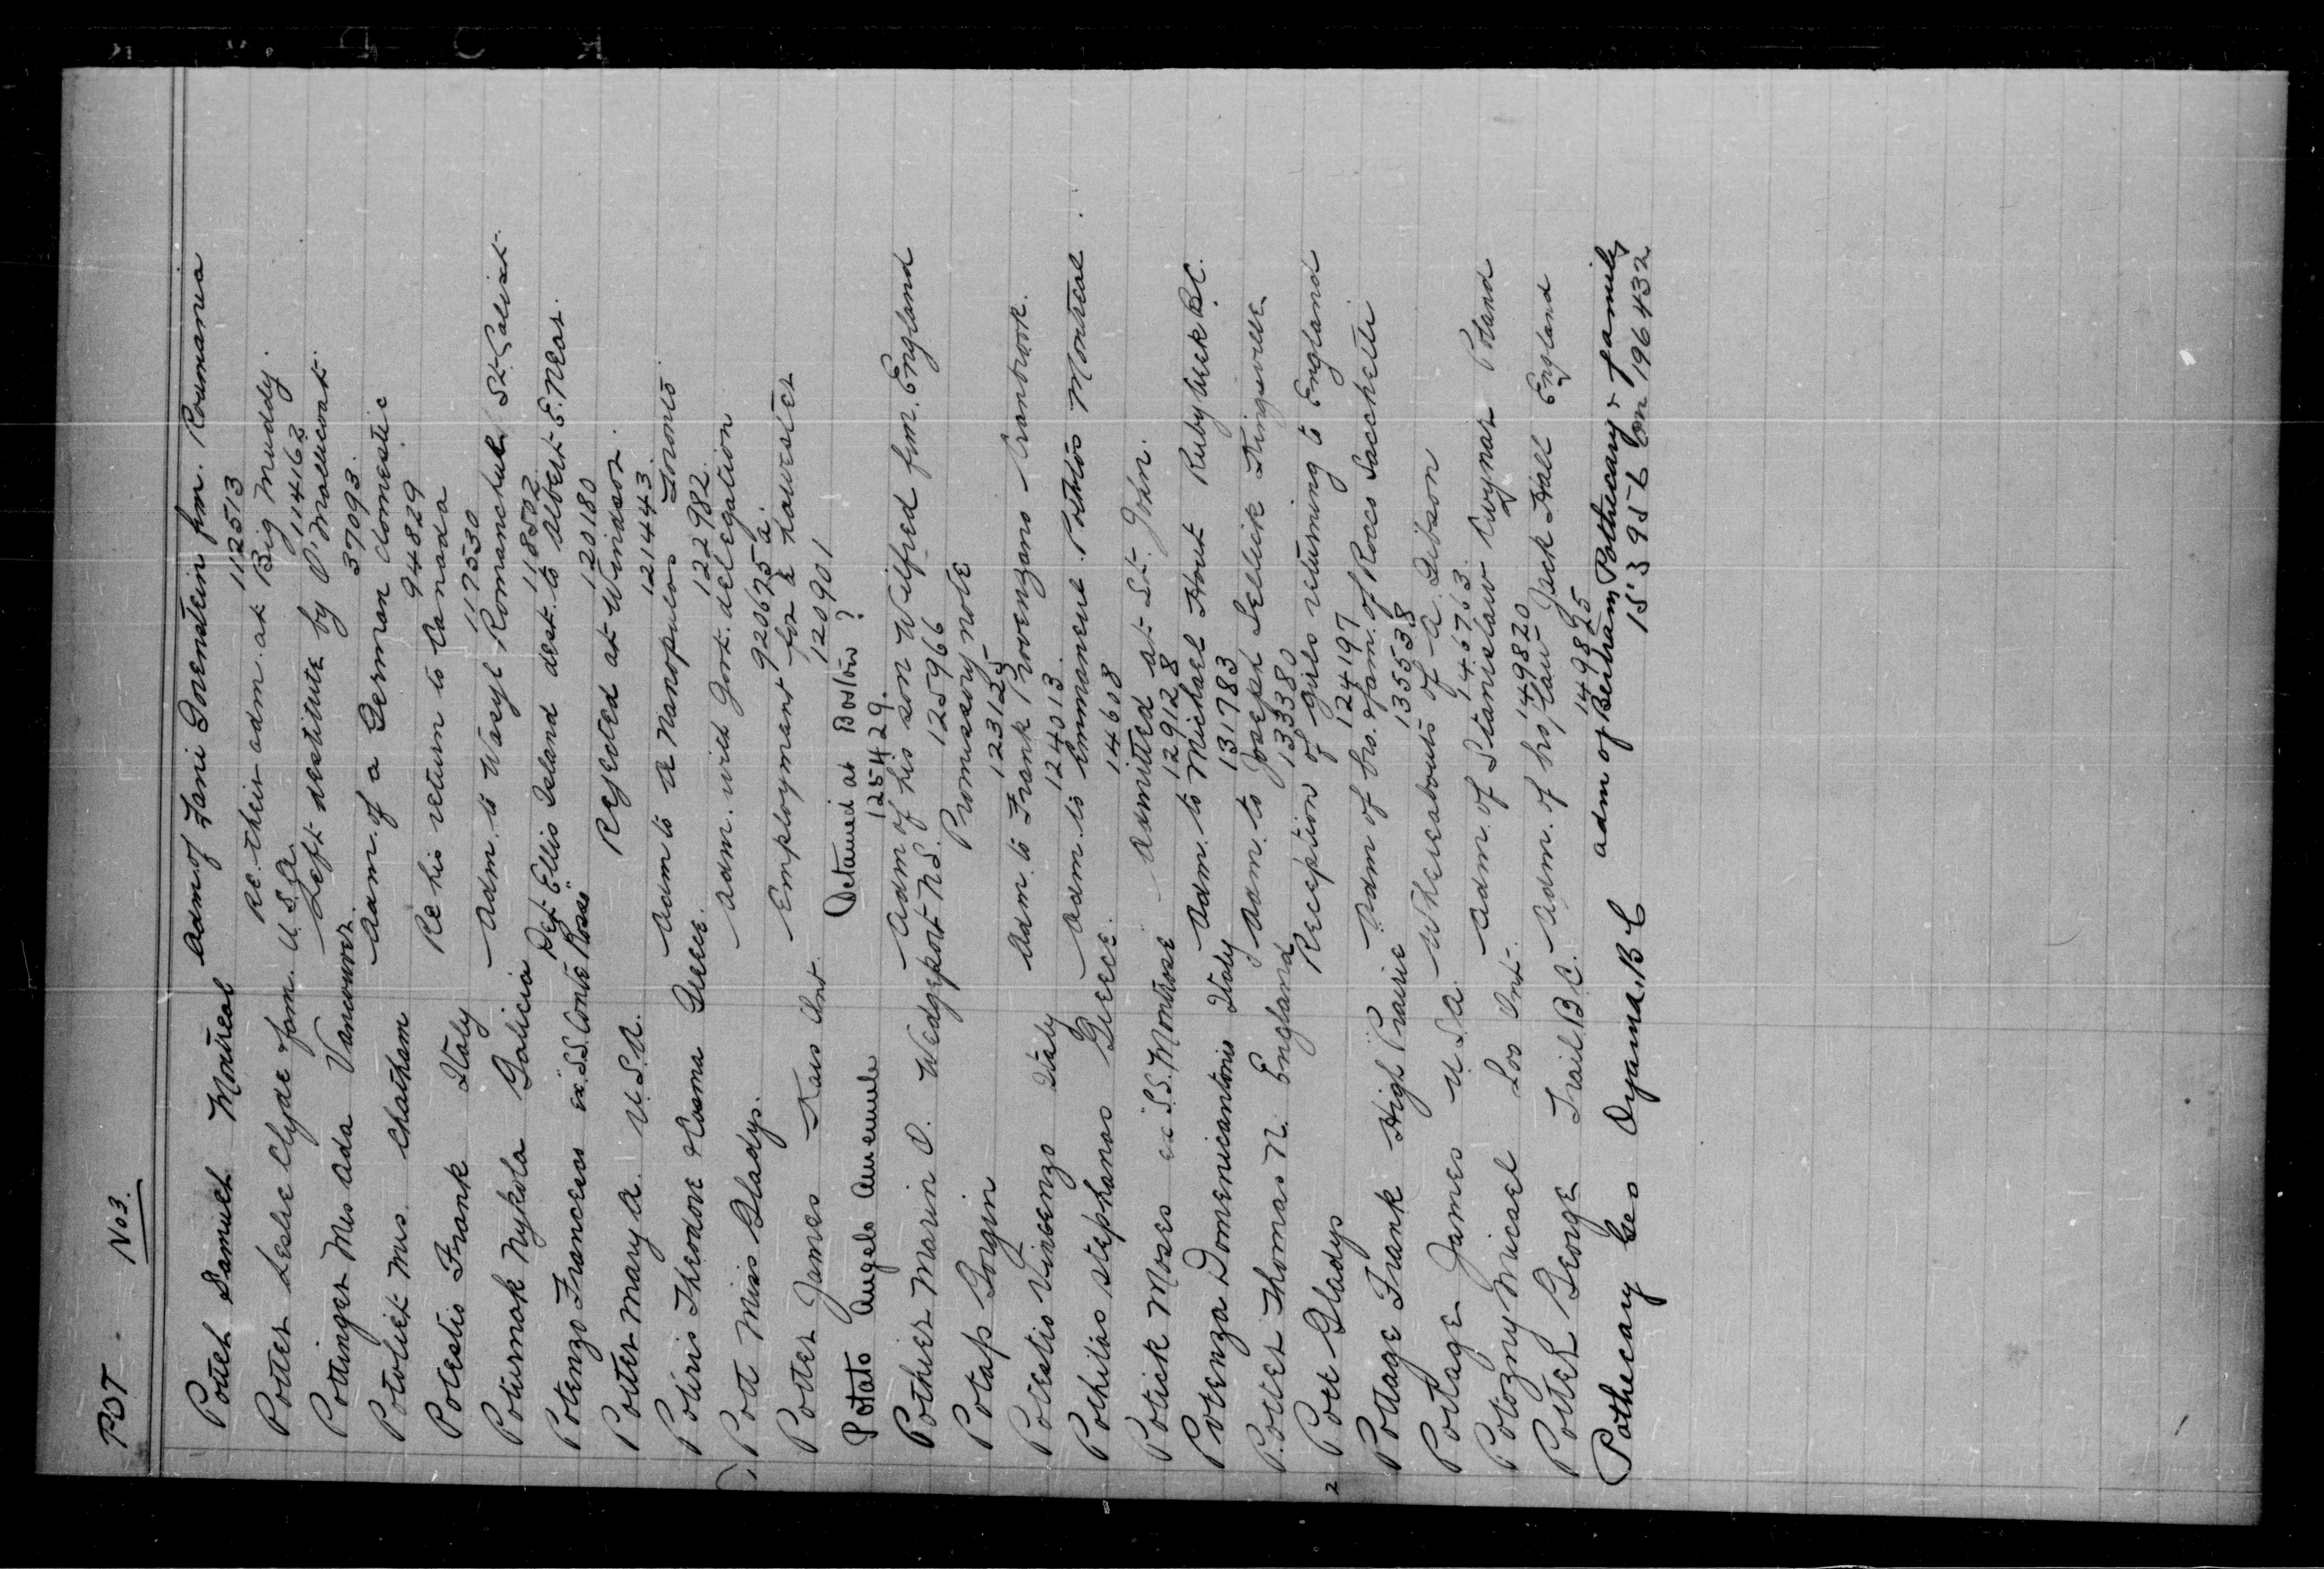 POT No 3.
Potter Samuel Montreal Adm. of Fani Gorenstein frm. Roumania
112513
Potter Leslie Clyde fam. U.S.A. Re. their adm. at Big Muddy.
114463
Pottinger Mrs Ada Vancouver. Left destitute by
37093.
Mrs. Chatham Adm. of a German domestic
94829
Potestio Frank Italy Re his return to Canada
117530
Poturnak Nykola Galicia Adm. to Wasyl Romanchuk St.
118502
Potenzo Francesco ex. S.S. "Conte Rosso" Dept. Ellis Island dest. to Albert E. Near.
120180
Potter Mary A. U.S.A. Rejected at Windsor.
121443.
Potiris Theodore & Cosma Greece. Adm to A Nanopulos Toronto.
122982.
Pott Miss Gladys. Adm. with Govt. delegation
920675 a.
Potter James Kars Ont. Employment for a harvester
120901
Potato Angelo Detained at Boston?
125429.
Pothier Marin D. Wedgeport N.S. Adm of his son Wilfred frm. England
125966
Potap Gorgin Promissory note
123125
Potestio Vincenzo Italy Adm. to Frank Provenzano Cranbrook.
124013.
Pothitos Stephanos Greece. Adm. to Emmanuel Pothitos Montreal.
14608
Potick Moses ex "S.S. Montrose Admitted at St. John.
129128
Potenza Domenicantonio Italy Adm. to Michael Hout Ruby Creek B.C.
131783
Potter Thomas N. England Adm. to Joseph Sellick Kingsville
133380
2 Pott Gladys Reception of girls returning to England
12419 7
Pottage Frank High Prairie Adm of bro. & fam. of Rocco Sacchetti
135538
Portage James U.S.A. Whereabouts of A. Gibson
145763.
Potozny Micael Loo Ont. Adm. of Stanislaw Cwynar Poland
149820
Potter George Trail B.C. Adm. of bro/law Jack Hall England
149825
Pothecary Geo Oyama, B C adm of Bertram Pothecary & family
15395 L Con 196432